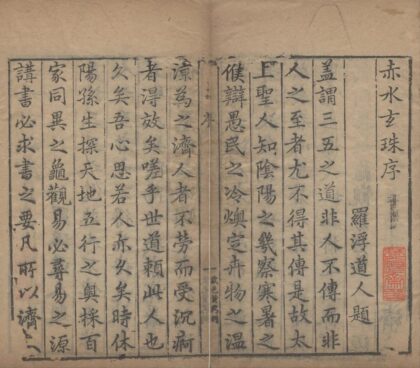 赤水玄珠序
羅浮道人題
蓋謂三五之道非人不傳而非
人之至者尤不得其傳是故太
上聖人知陰陽之幾察寒暑之
候辯愚民之冷燠定卉物之温
涼為之濟人者不勞而受沉痾
者淂效矣嗟乎世道賴此人也
久矣吾心思若人亦久矣時休
陽孫生探天地五行之奥採百
家同異之龜觀易必尋易之源
講書必求書之要凡所以濟人